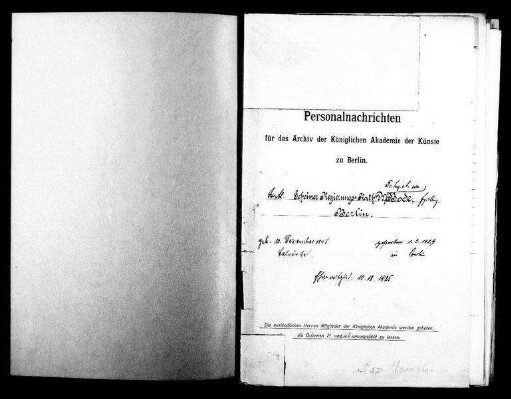 Personalnachrichten
für das Archiv der Königlichen Akademie der Künste
zu Berlin.
Geheimer Regierungs-Rat Bode,
Berlin.
geb. 10. Dezember 1845
gestorben 1.3.1929
in Berlin
Calvörde
Ehrenmitglied 10.12.
Die ausländischen Herren Mitglieder der Königlichen Akademie werden gebeten,
die Colonnen unausgefüllt zu lassen.